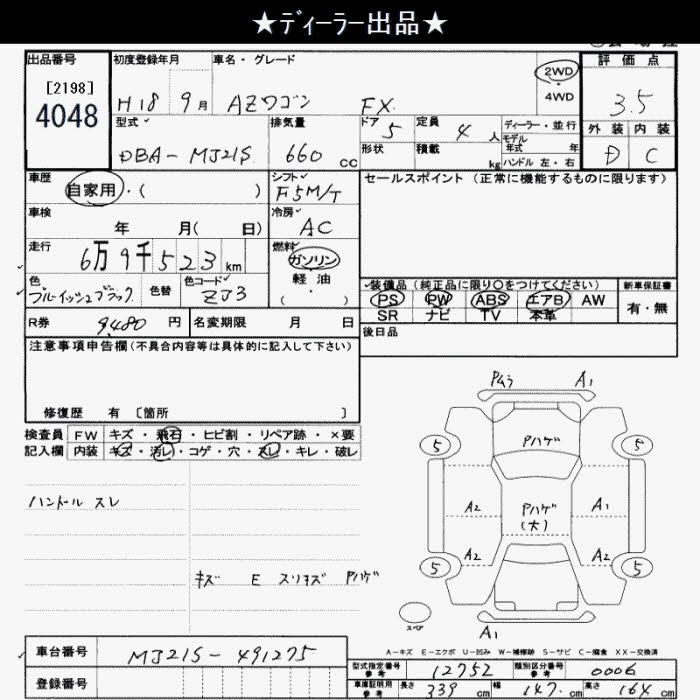 ★ディーラー出品★
出品番号 初度登録年月 車名・グレード 評価点
[2198] 4048
H18 9月 AZワゴン FX 2WD・4WD 3.5
型式 排気量 ドア 5 定員 4人 ディーラー・並行 外装 内装
DBA-MJ21S 660cc 形状 積載 kg モデル年式 年 D C
ハンドル 左・右
車歴 自家用・( ) シフト F5M/T セールスポイント (正常に機能するものに限ります)
車検 年 月( 日) 冷房 AC
走行 6万9千523km 燃料 ガソリン
軽油
( ・ )
色 ブルーイッシュブラック 色替 色コード ZJ3
装備品 (純正品に限り〇をつけてください) 新車保証書
PS PW ABS エアB AW 有・無
SR ナビ TV 本革
R券 9,480円 名変期限 月 日 後日品
注意事項申告欄(不具合内容等は具体的に記入して下さい)
修復歴 有 〔箇所 〕
検査員 FW キズ・飛石・ヒビ割・リペア跡・×要
記入欄 内装 キズ・汚レ・コゲ・穴・スレ・キレ・破レ
ハンドル スレ
キズ E スリキズ Pハゲ
Pムラ A1
5 Pハゲ 5
A2 Pハゲ A1
(大)
A2 A2
5 5
スペア A1
A-キズ E-エクボ U-凹み W-補修跡 S-サビ C-腐食 XX-交換済
車台番号 MJ21S-491275
登録番号
型式指定番号 参考 12752 類別区分番号 参考 0006
車庫証明用 参考 長さ 339cm 幅 147cm 高さ 164cm